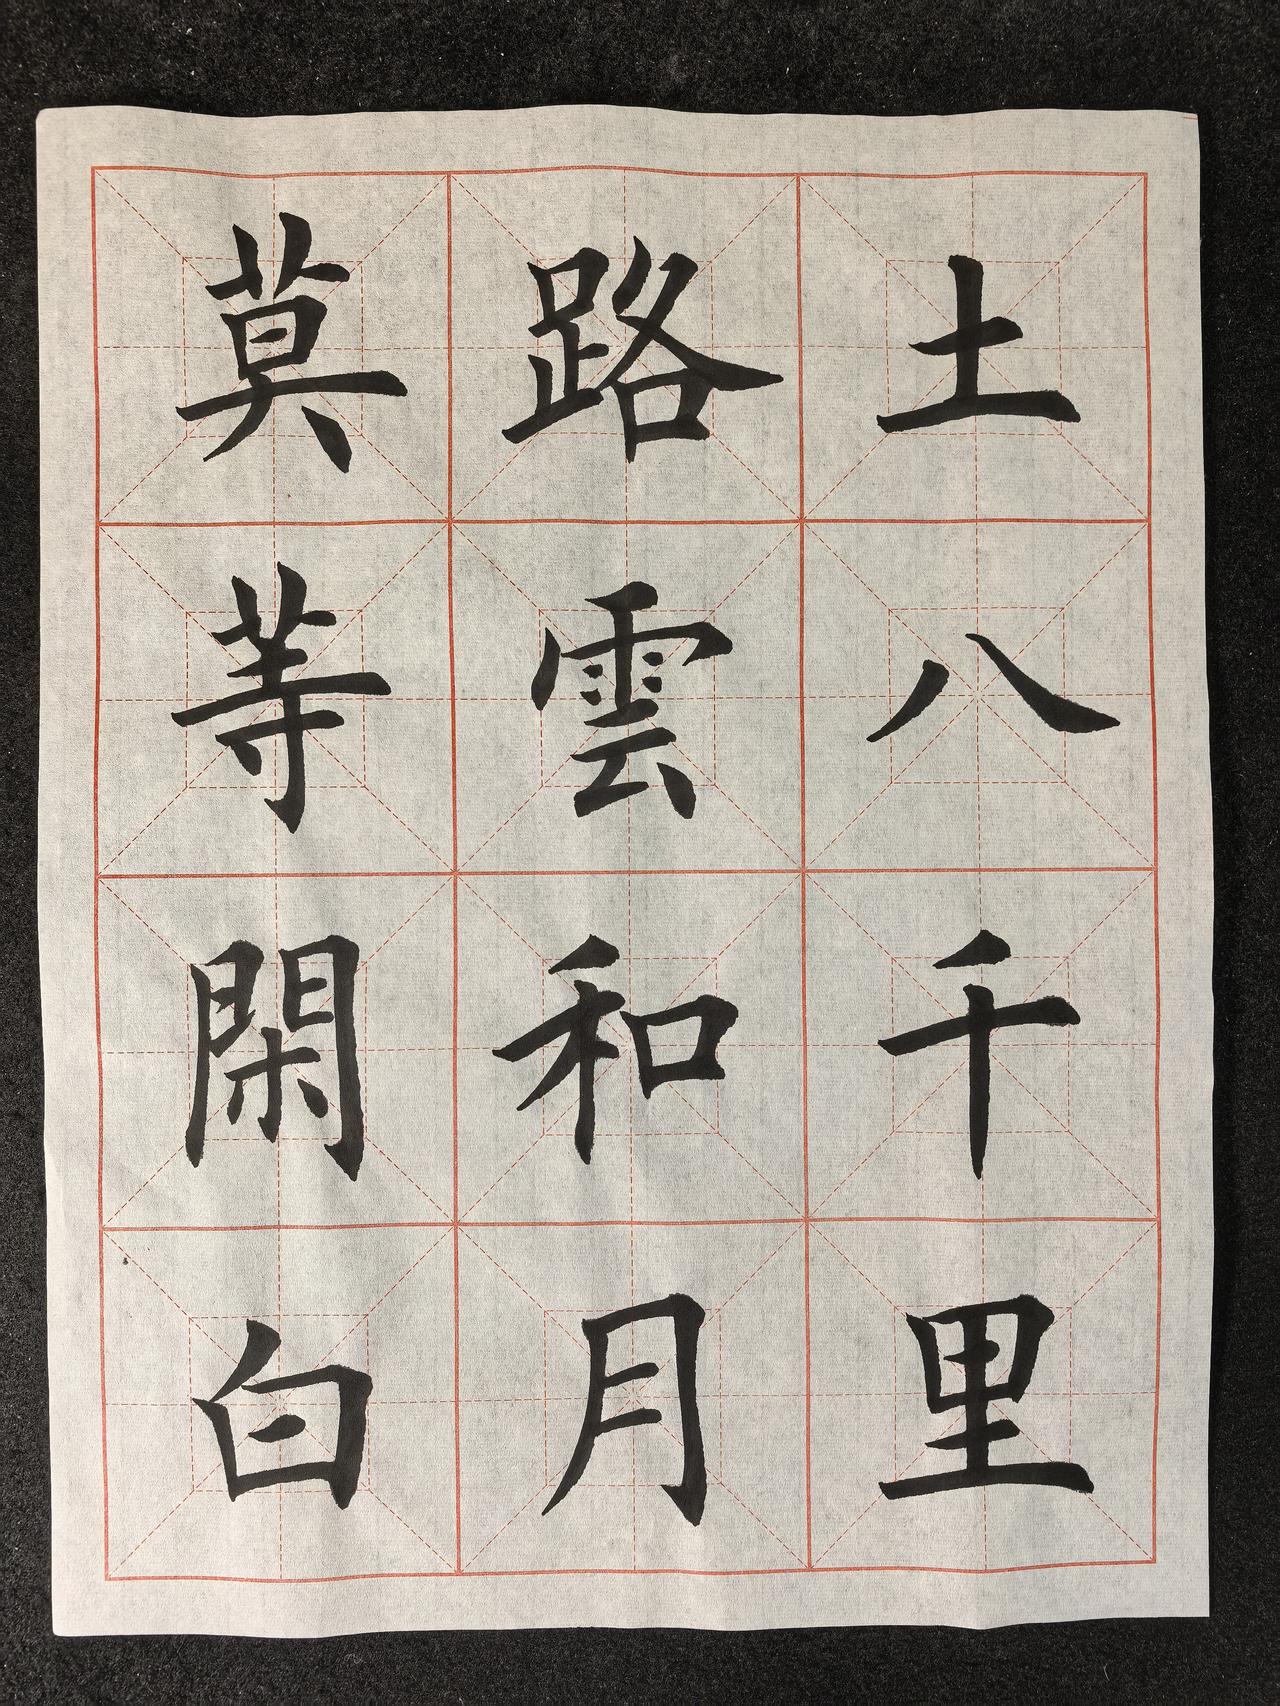 土八千里
路雲和月
莫等閑白